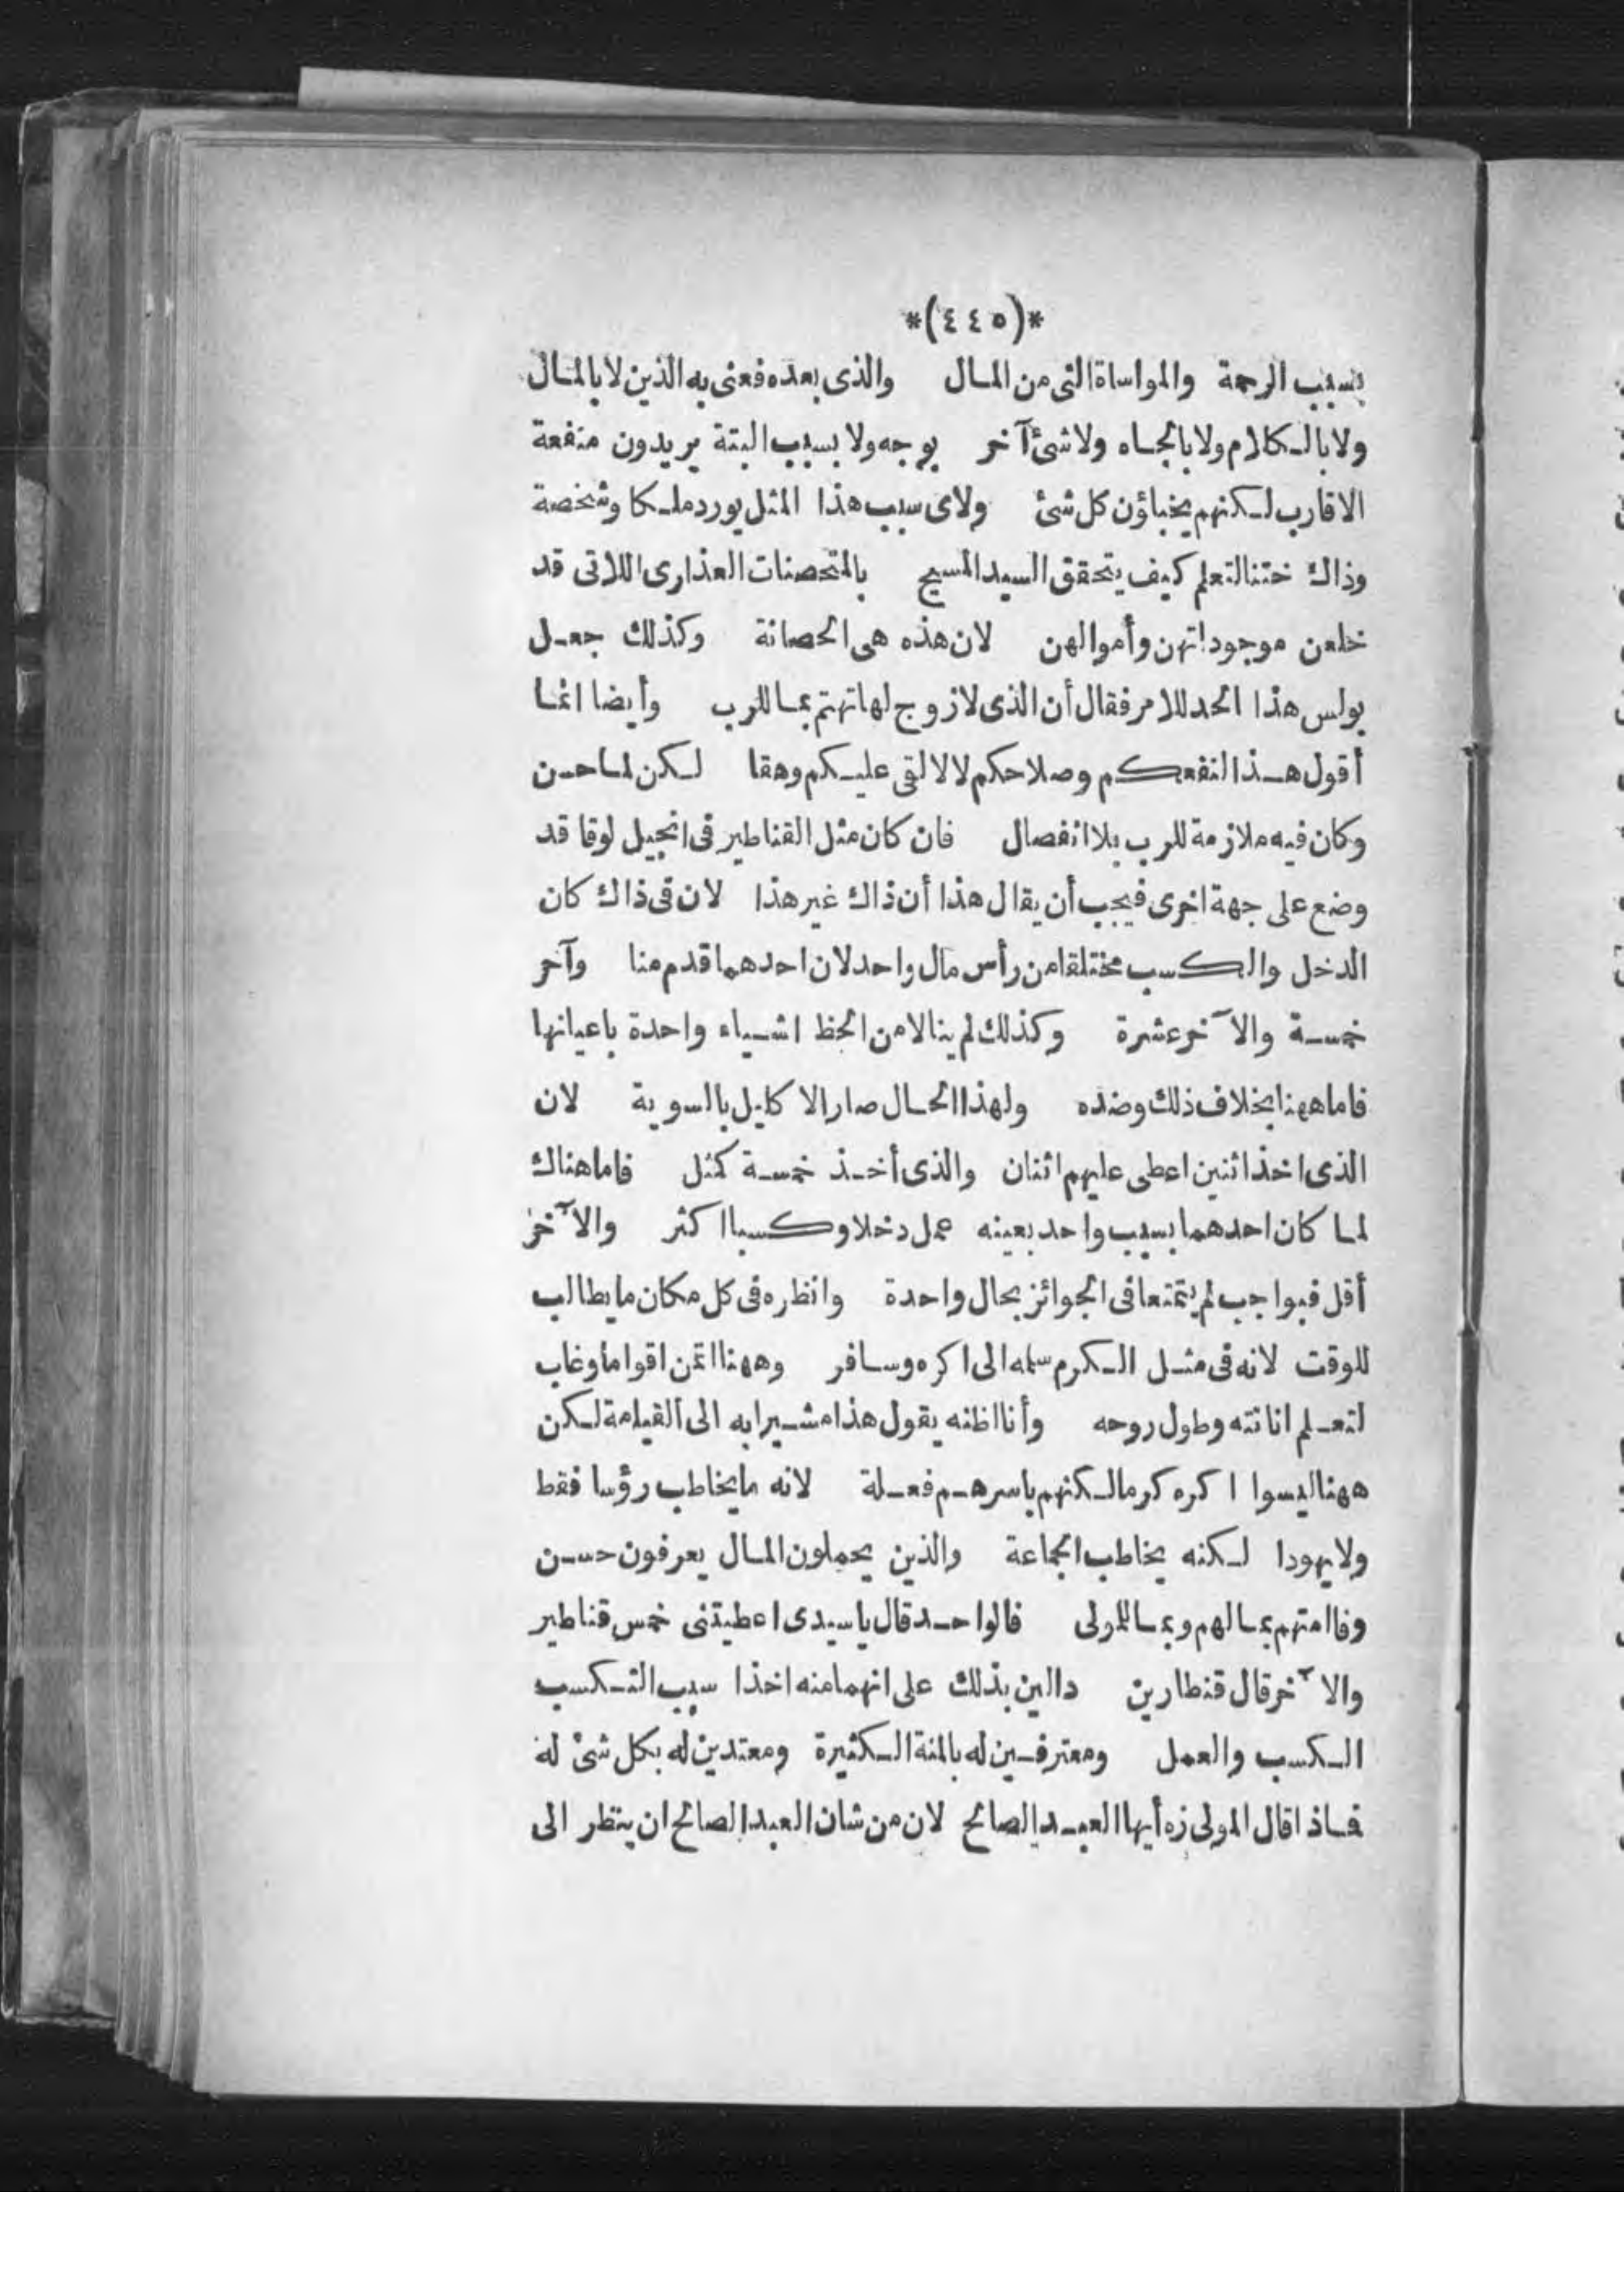 *(٤٤٥)*
بسبب الرحمة والمواساة التى من المال والذى بعده فعنى به الذين لا بالمال
ولا بالكلام ولا بالجاه ولا شئ آخر بوجه ولا بسبب البتة يريدون منفعة
الاقارب لكنهم يخباؤن كل شئ ولاى سبب هذا المثل يورد ملكا وشخصة
وذاك ختنا لتعلم كيف يتحقق السيد المسيح بالمتحصنات العذارى اللاتى قد
خلعن موجوداتهن وأموالهن لان هذه هى الحصانة وكذلك جعل
بولس هذا الحد للامر فقال أن الذى لا زوج لها تهتم بما للرب وأيضا انما
أقول هذا لنفعكم وصلاحكم لا لالقى عليكم وهقا لكن لما حسن
وكان فيه ملازمة للرب بلا انفصال فان كان مثل القناطير فى انجيل لوقا قد
وضع على جهة اخرى فيجب أن يقال هذا أن ذاك غير هذا لان فى ذاك كان
الدخل والكسب مختلفا من رأس مال واحد لان احدهما قدم منا وآخر
خمسة والآخر عشرة وكذلك لم ينالا من الحظ اشياء واحدة باعيانها
فاما ههنا بخلاف ذلك وضده ولهذا الحال صار الاكليل بالسوية لان
الذى اخذ اثنين اعطى عليهم اثنان والذى أخذ خمسة كمثل فاما هناك
لما كان احدهما بسبب واحد بعينه عمل دخلا وكسبا اكثر والآخر
أقل فبواجب لم يتمتعا فى الجوائز بحال واحدة وانظره فى كل مكان ما يطالب
للوقت لانه فى مثل الكرم سلمه الى اكره وسافر وههنا ائتمن اقواما وغاب
لتعلم اناته وطول روحه وأنا اظنه يقول هذا مشيرا به الى القيامة لكن
ههنا ليسوا اكره كرما لكنهم باسرهم فعلة لانه ما يخاطب رؤسا فقط
ولا يهودا لكنه يخاطب الجماعة والذين يحملون المال يعرفون حسن
وفاامتهم بما لهم وبما للولى فالواحد قال يا سيدى اعطيتنى خمس قناطير
والآخر قال قنطارين دالين بذلك على انهما منه اخذا سبب التكسب
الكسب والعمل ومعترفين له بالمنة الكثيرة ومعتدين له بكل شئ له
فاذا قال المولى زه أيها العبد الصالح لان من شان العبد الصالح ان ينظر الى